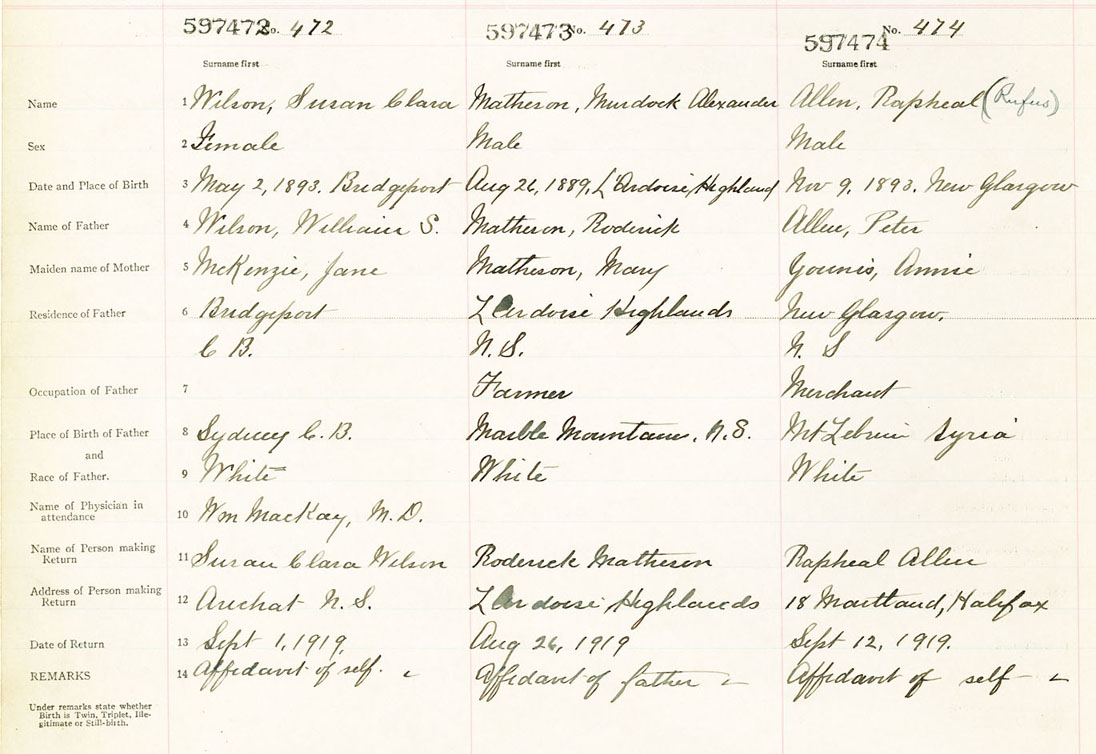 597472 No. 472 597473 No. 473 597474 No. 474
Surname first Surname first Surname first
Name 1 Wilson, Susan Clara Matheson, Murdock Alexander Allen, Rapheal (Rufus)
Sex 2 Female Male Male
Date and Place of Birth 3 May 2, 1893. Bridgeport Aug 26, 1889, L'Ardoise Highland Nov 9, 1893. New Glasgow
Name of Father 4 Wilson, William S. Matheson, Roderick Allen, Peter
Maiden name of Mother 5 McKenzie, Jane Matheson, Mary Younis, Annie
Residence of Father 6 Bridgeport L'Ardoise Highlands New Glasgow,
C B. N.S. N. S
Occupation of Father 7 Farmer Merchant
Place of Birth of Father 8 Sydney C. B. Marble Mountain, N.S. Mt Syria
and
Race of Father. 9 White White White
Name of Physician in
attendance 10 Wm MacKay, M. D.
Name of Person making
Return 11 Susan Clara Wilson Roderick Matheson Rapheal Allen
Address of Person making
Return 12 Arichat N. S. L'Ardoise Highlands 18 Maitland, Halifax
Date of Return 13 Sept 1, 1919, Aug 26, 1919 Sept 12, 1919.
REMARKS 14 Affidavit of self. Affidavit of father Affidavit of self
Under remarks state whether
Birth is Twin, Triplet, Ille-
gitimate or Still-birth.